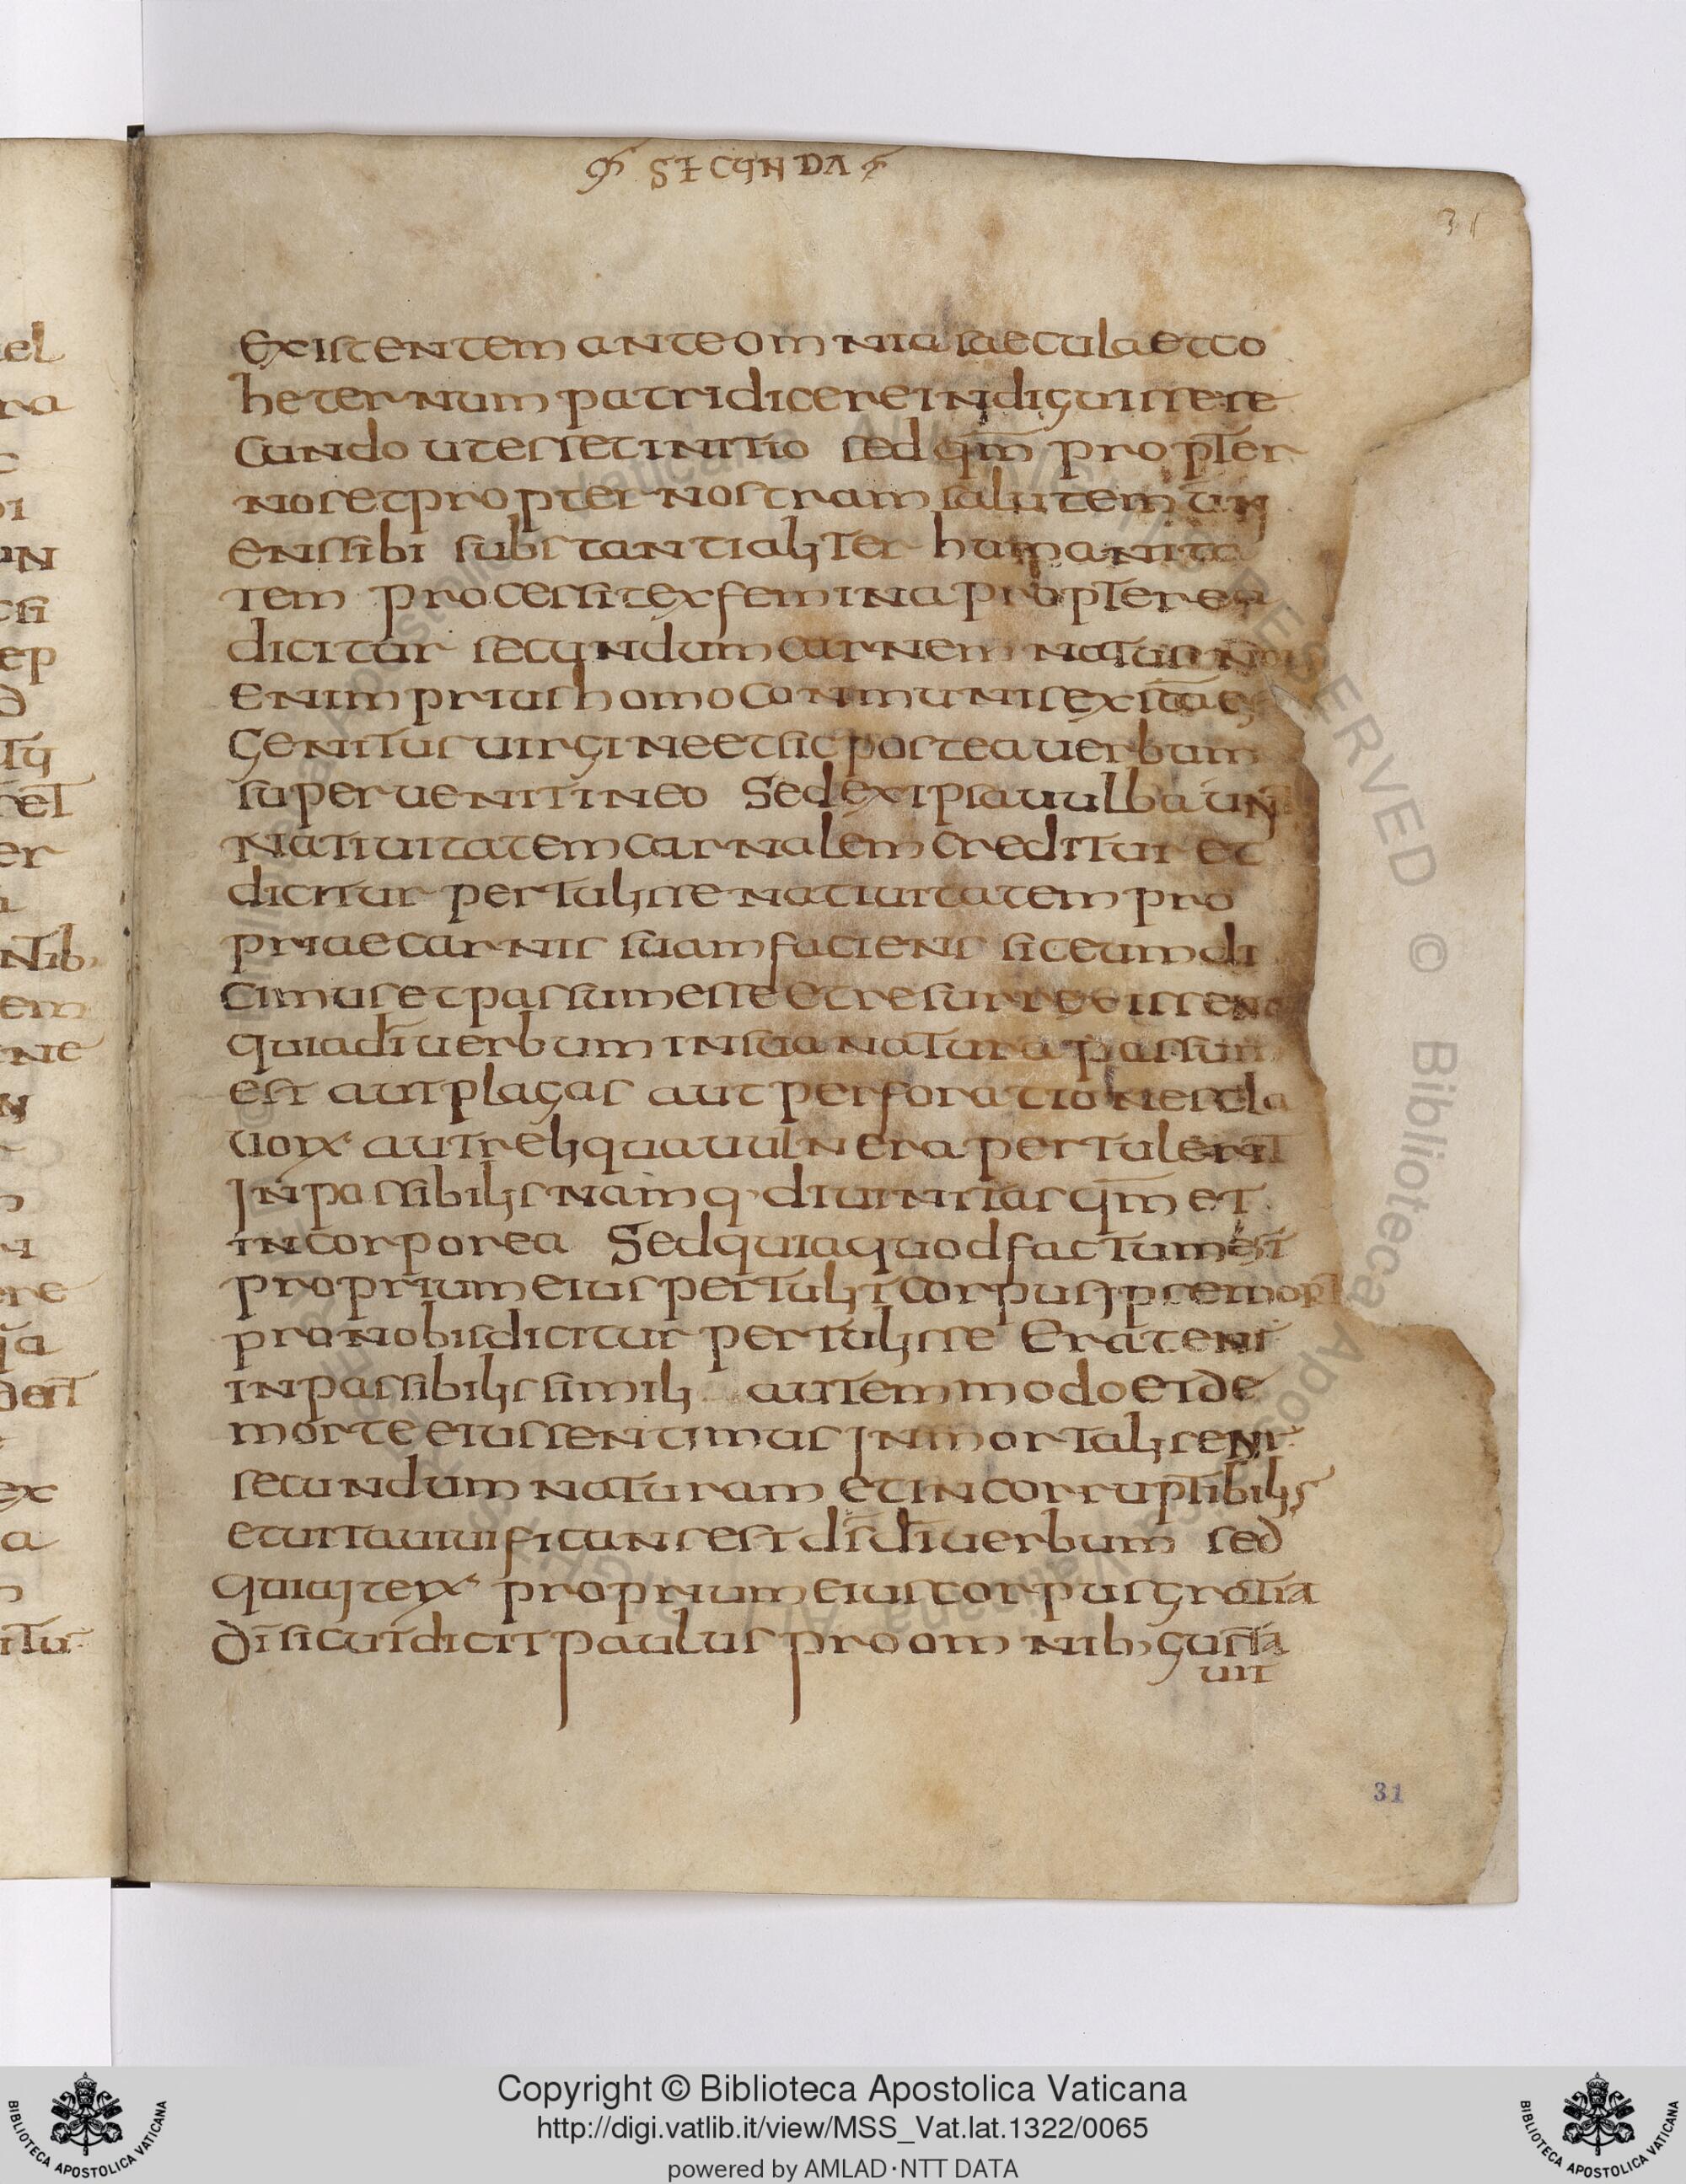 SECUNDA
31
existentem ante omnia saecula et co
heternum patri dicere indiguisse se
cundo ut esset initio sed qm̄ propter
nos et propter nostram salutem un
ens sibi substantialiter humanita
tem processit ex femina propterea
dicitur secundum carnem natus non
enim prius homo conmunis ex sc̄a es
genitus uirgine et sic postea uerbum
superuenit in eo Sed ex ipsa uulba
natiuitatem carnalem creditur et
dicitur pertulisse natiuitatem pro
priae carnis suam faciens sic eum di
cimus et passum esse et resurrexisse no
quia dī uerbum in sua natura passum
est aut plagas aut perforationes cla
uorx aut reliqua uulnera pertulerit
Inpassibilis namq· diuinitas qm̄ et
incorporea Sed quia quod factum est
proprium eius pertulit corpus ipse mort
pro nobis dicitur pertulisse Erat eni
inpassibilis simili autem modo et de
morte eius sentimus Inmortalis eni
secundum naturam et incorruptibilis
et uita uiuificans est ds̄ dī uerbum sed
quia iterx proprium eius corpus gratia
dī sicut dicit paulus pro omnib· gusta
uit
31
el
ra
un
ep
er
ntib·
em
ne
ere
ex
a
itu
Copyright © Biblioteca Apostolica Vaticana
http://digi.vatlib.it/view/MSS_Vat.lat.1322/0065
powered by AMLAD·NTT DATA
BIBLIOTECA APOSTOLICA VATICANA
BIBLIOTECA APOSTOLICA VATICANA